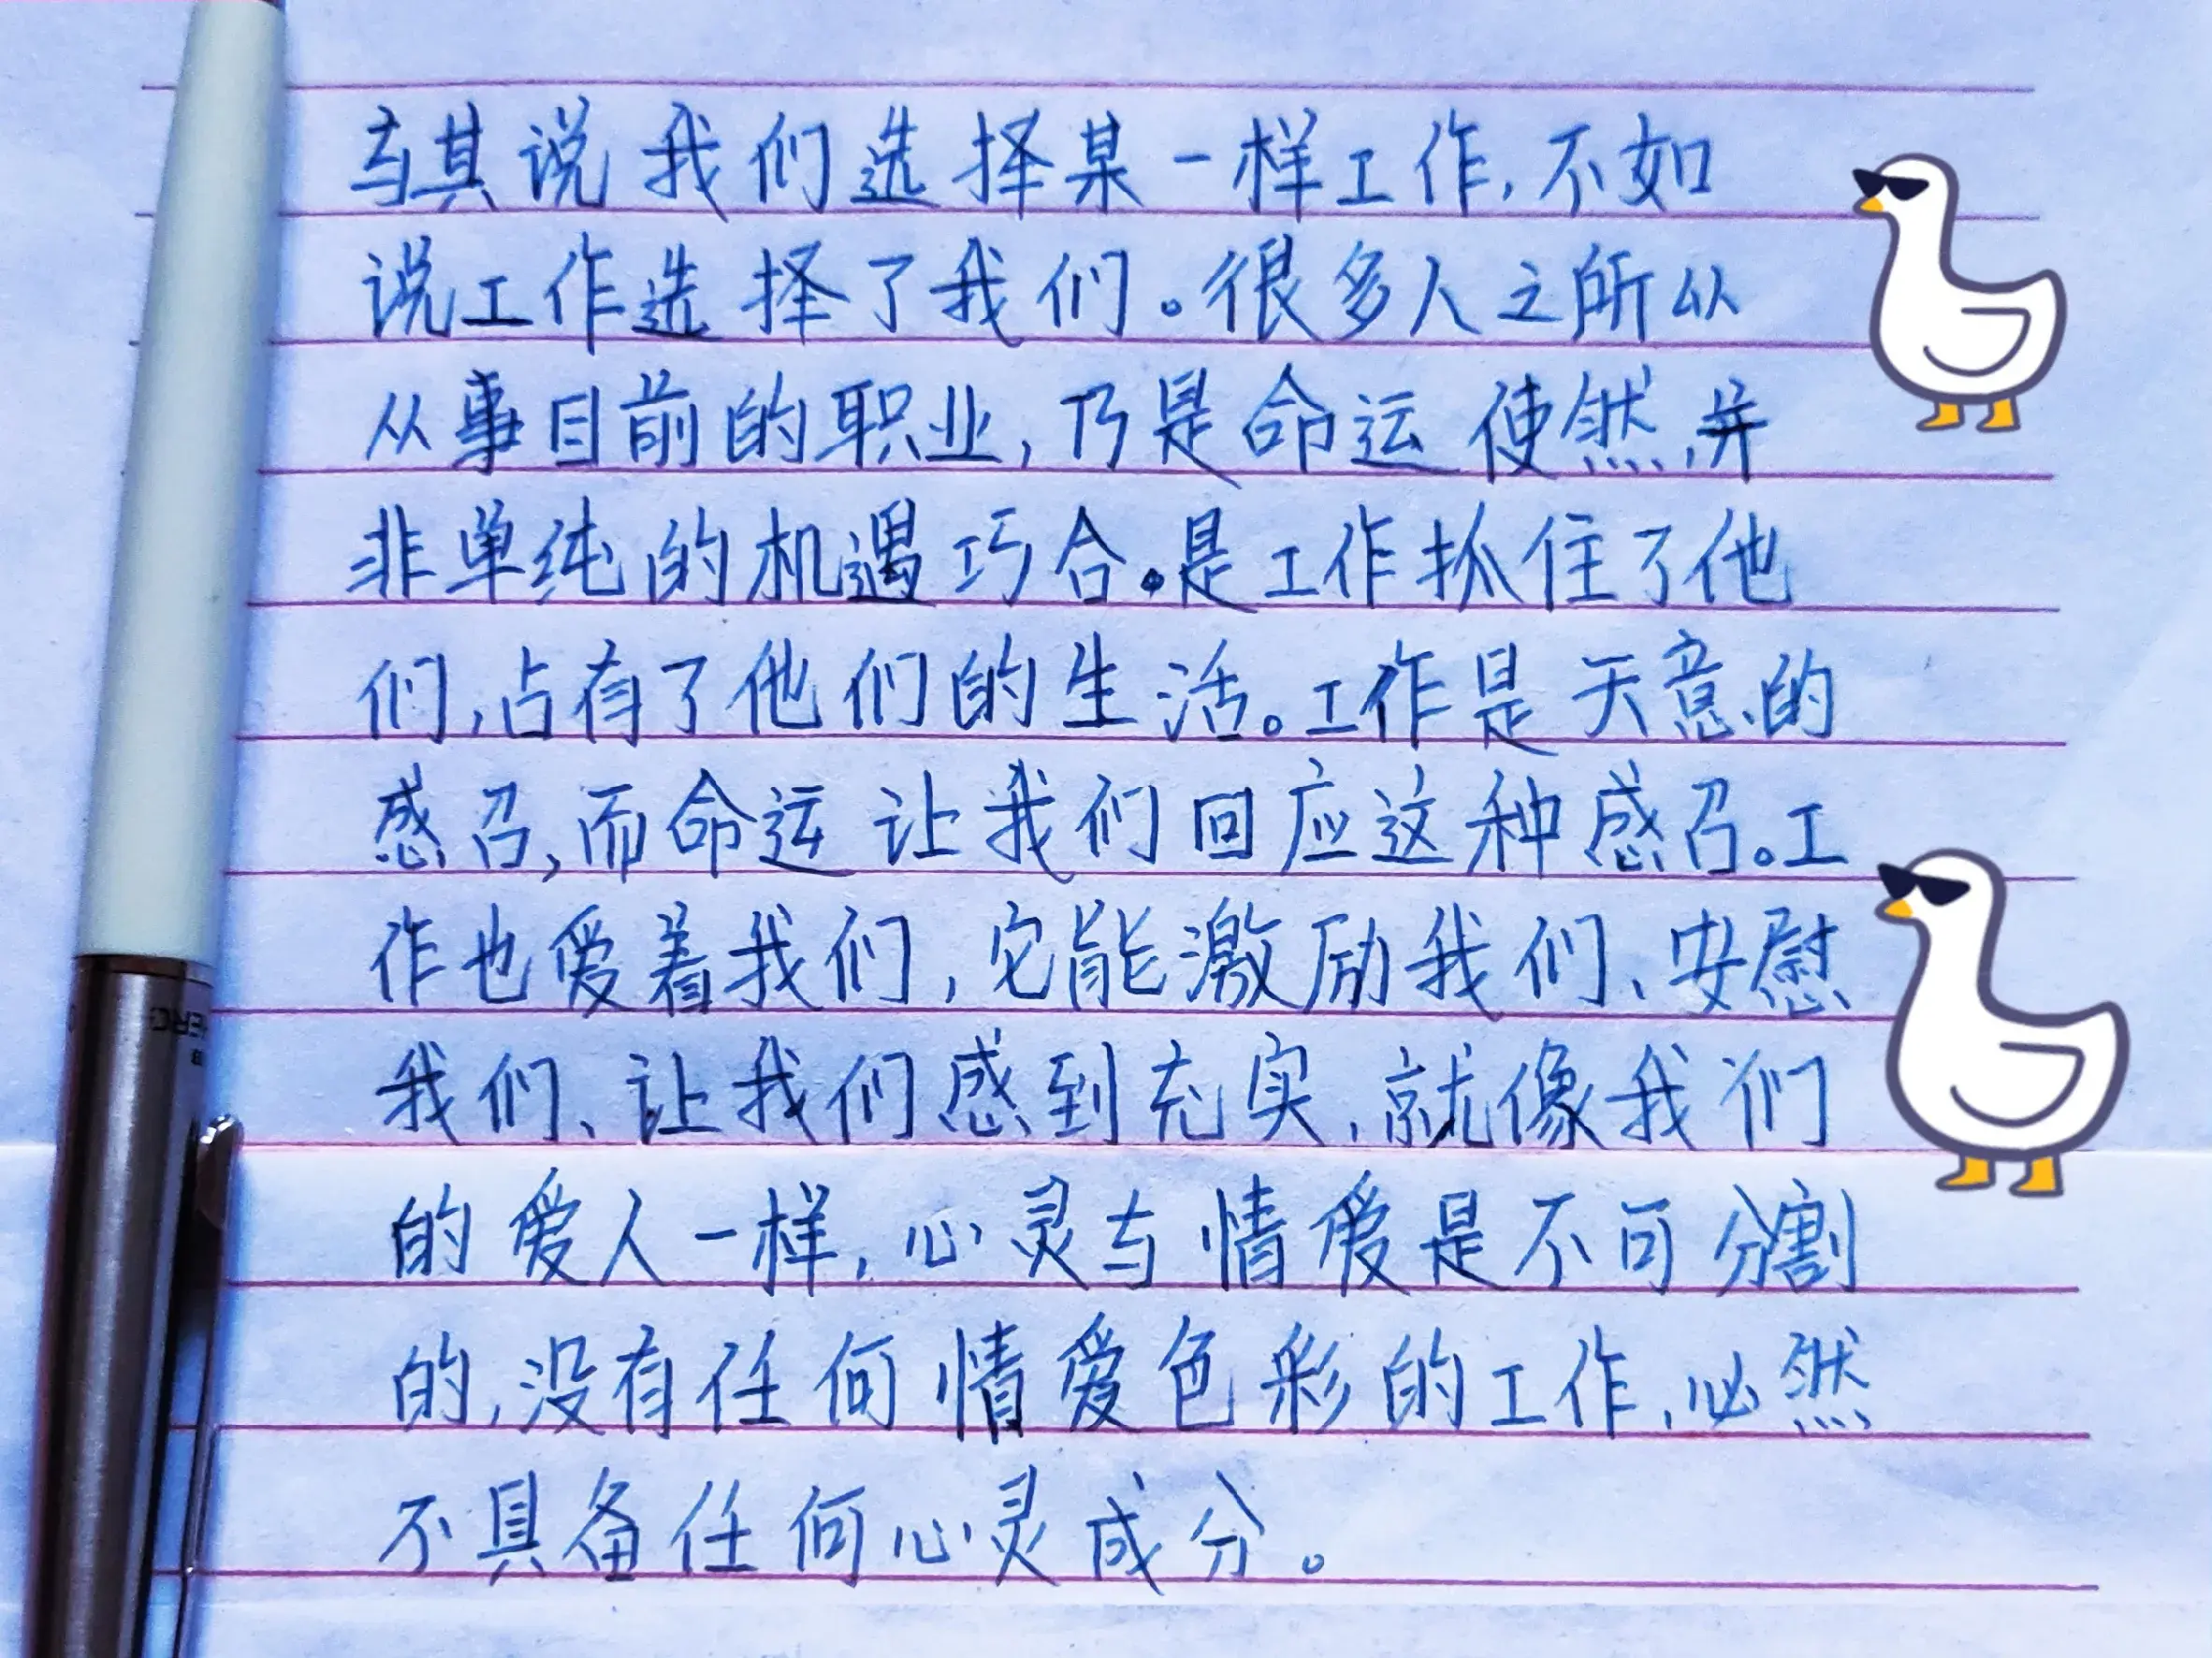 与其说我们选择某一样工作,不如
说工作选择了我们。很多人之所以
从事目前的职业,乃是命运使然,并
非单纯的机遇巧合。是工作抓住了他
们,占有了他们的生活。工作是天意的
感召,而命运让我们回应这种感召。工
作也爱着我们,它能激励我们、安慰
我们、让我们感到充实,就像我们
的爱人一样,心灵与情爱是不可分割
的,没有任何情爱色彩的工作,必然
不具备任何心灵成分。